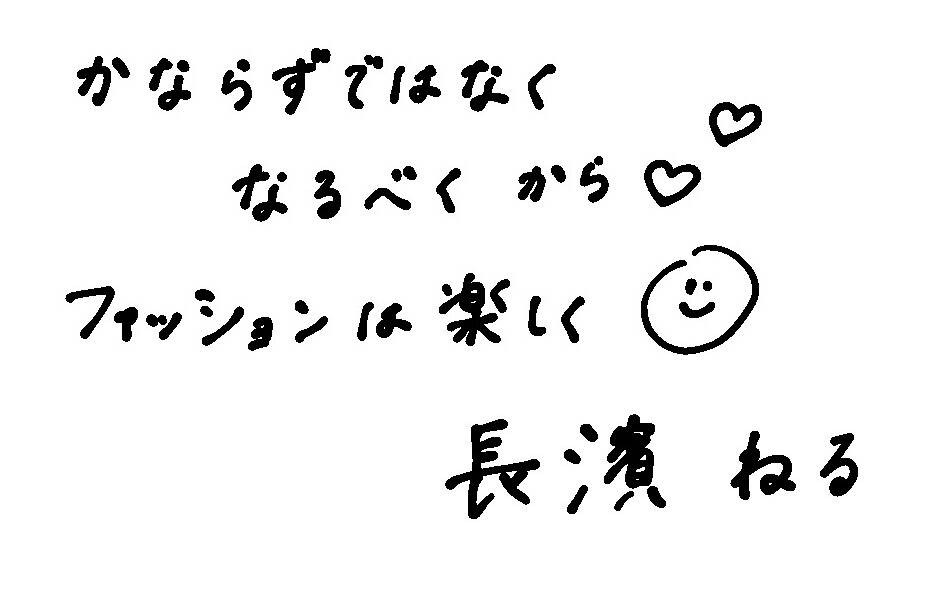 かならずではなく
なるべく から♡♡
ファッションは楽しく
長濱 ねる